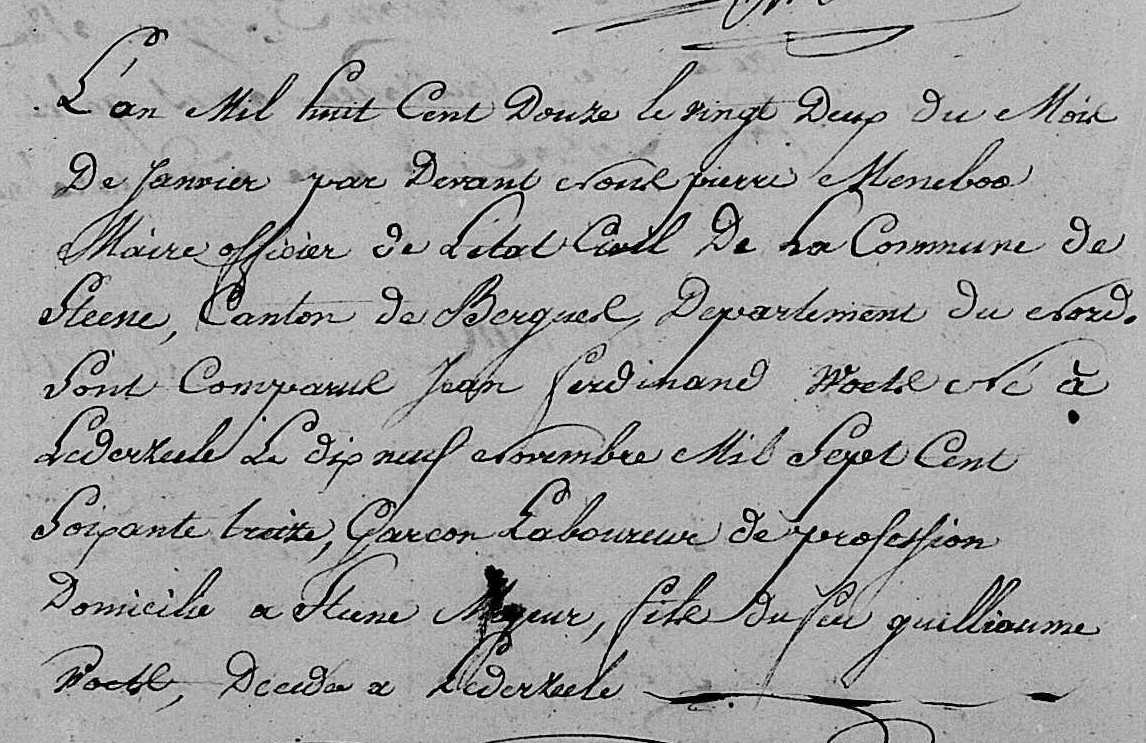 L'an Mil huit Cent Douze le vingt Deux du Mois
De Janvier par Devant Nous pierre Meneboo
Maire officier de Letat Civil De La Commune de
Steene, Canton de Bergues, Departement du Nord.
Sont Comparus Jean ferdinand Woets Né à
Lederzeele Le dix neuf Novembre Mil Sept Cent
Soixante treize, Garcon Laboureur de profession
Domicilie a Steene Majeur, fils du feu guilliaume
Woets, Decedé a Lederzeele